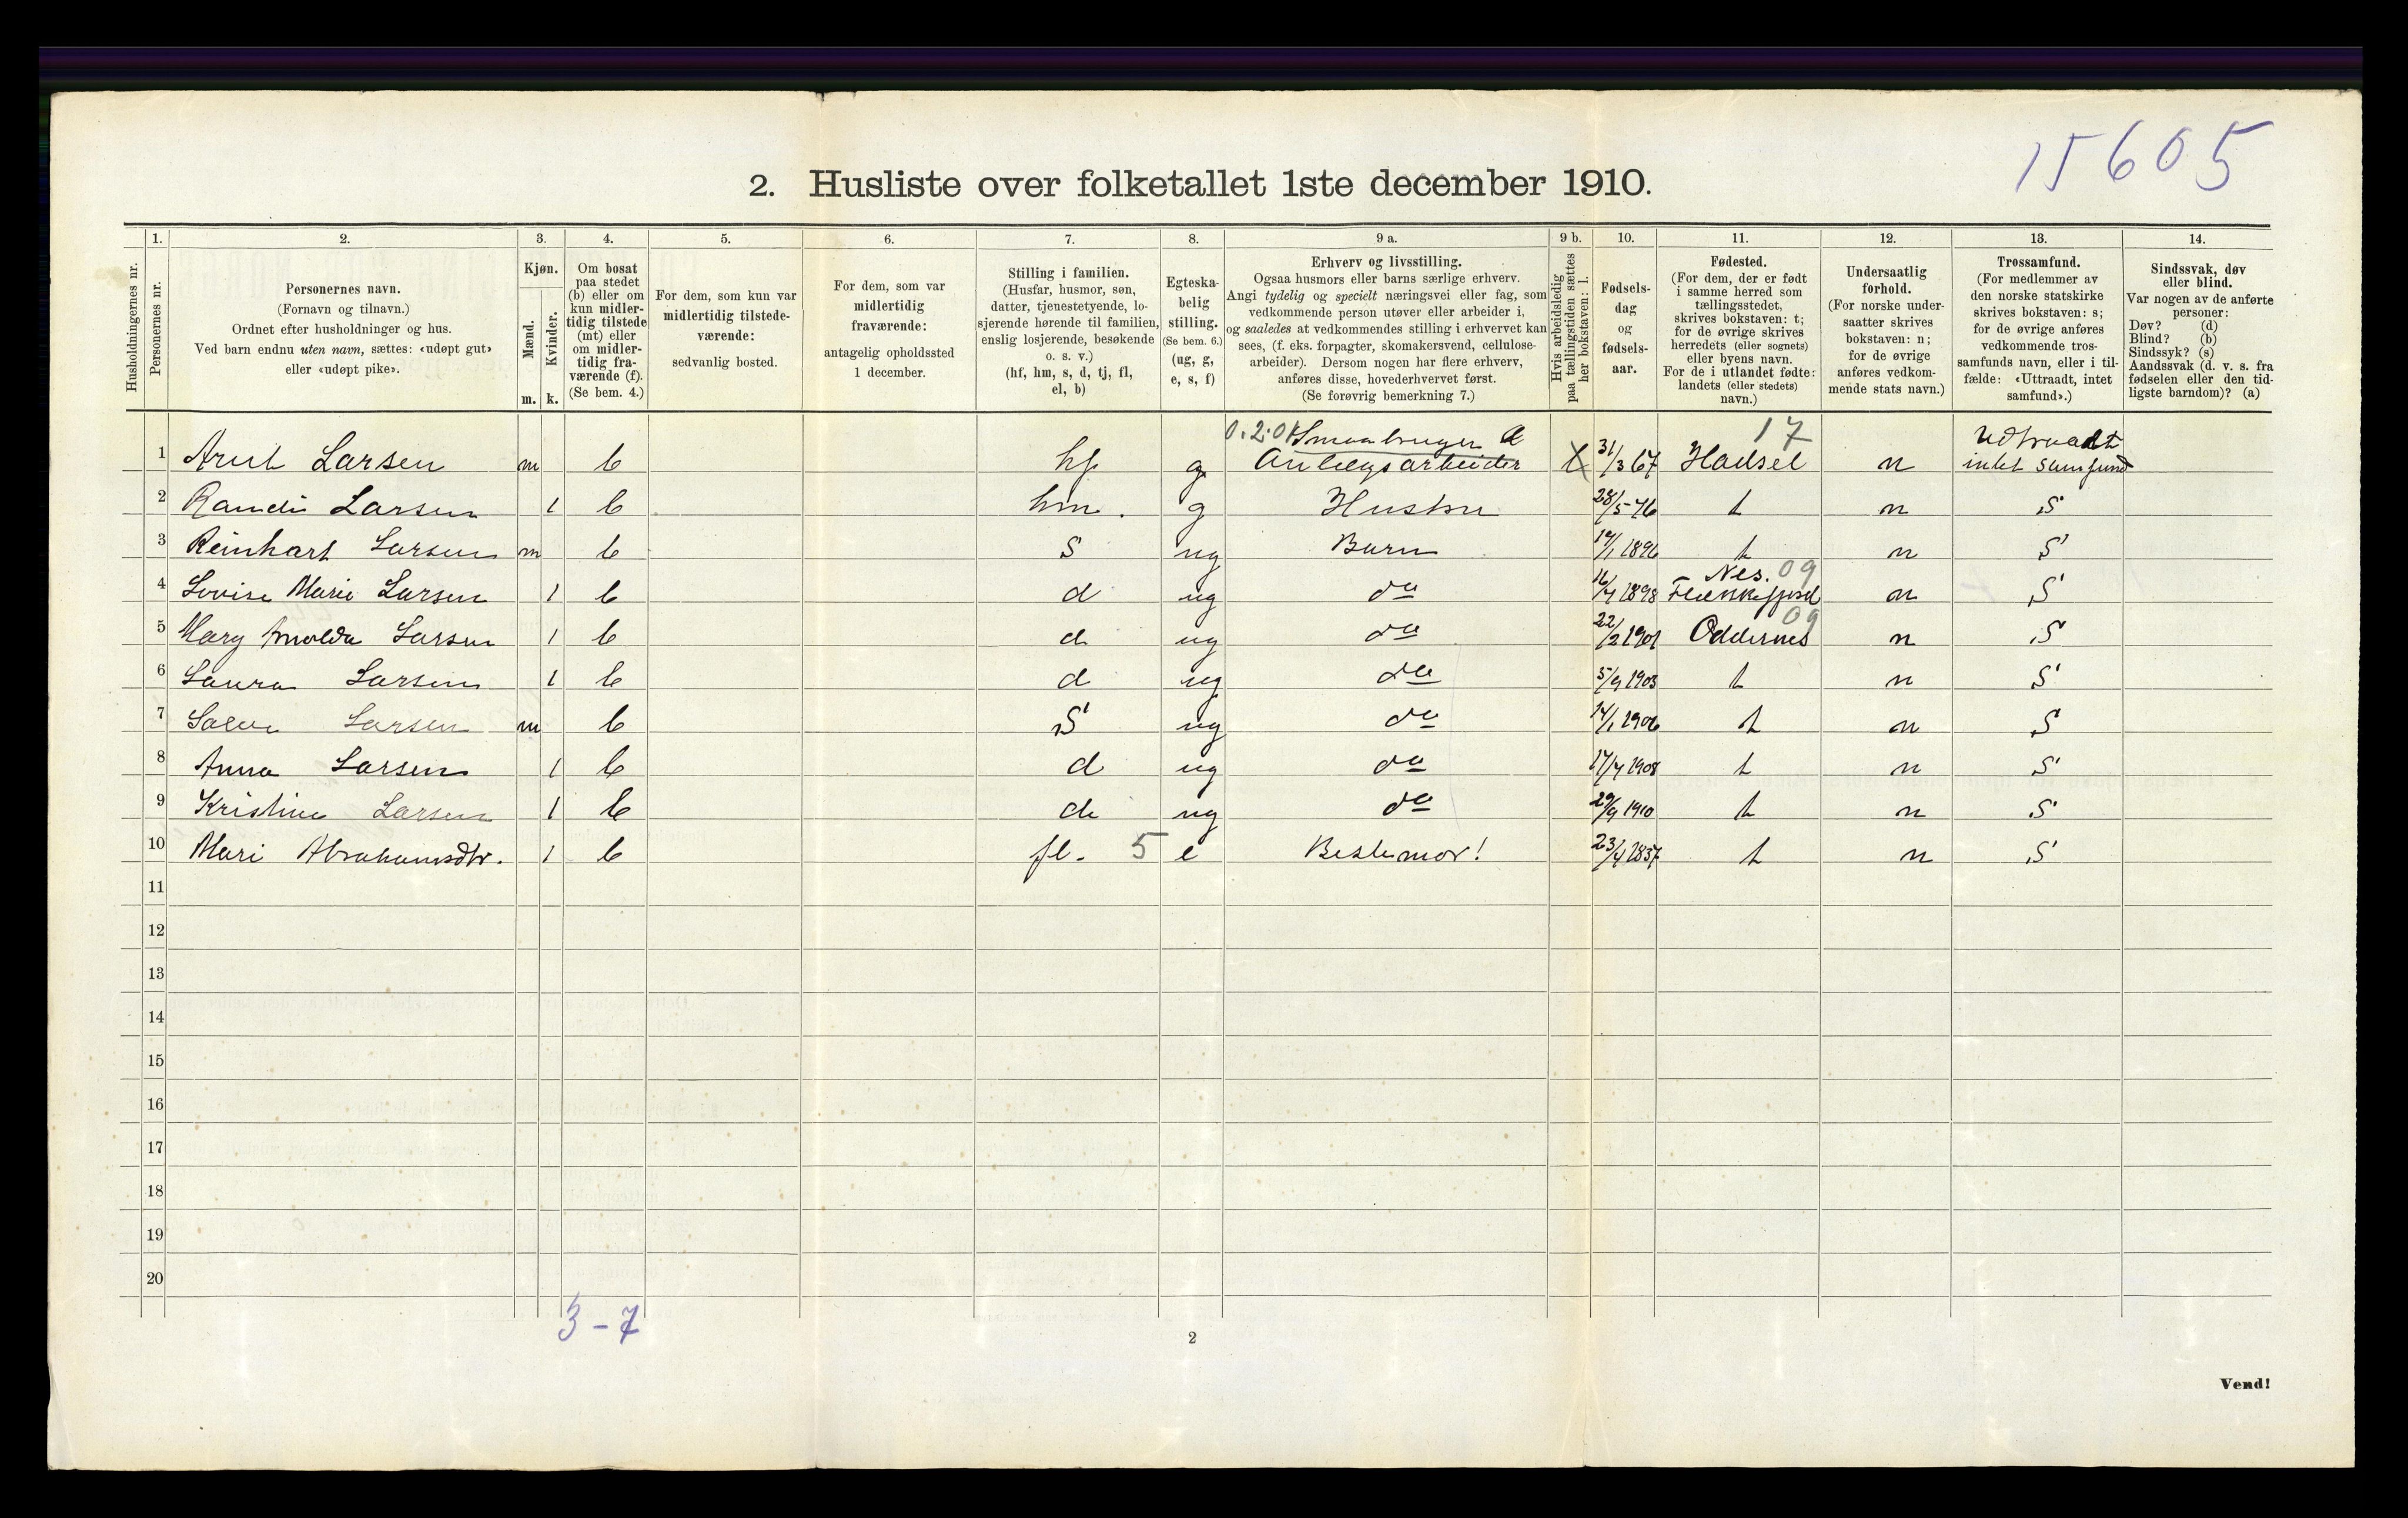 15605
2. Husliste over folketallet 1ste december 1910.
1. 2. 3. 4. 5. 6. 7. 8. 9 a. 9 b. 10. 11. 12. 13. 14.
Husholdningernes nr.
Personernes nr.
Personernes navn.
(Fornavn og tilnavn.)
Ordnet efter husholdninger og hus.
Ved barn endnu uten navn, sættes: «udøpt gut»
eller «udøpt pike».
Kjøn.
Mænd.
Kvinder.
m. k.
Om bosat
paa stedet
(b) eller om
kun midler-
tidig tilstede
(mt) eller
om midler-
tidig fra-
værende (f).
(Se bem. 4.)
For dem, som kun var
midlertidig tilstede-
værende:
sedvanlig bosted.
For dem, som var
midlertidig
fraværende:
antagelig opholdssted
1 december.
Stilling i familien.
(Husfar, husmor, søn,
datter, tjenestetyende, lo-
sjerende hørende til familien,
enslig losjerende, besøkende
o. s. v.)
(hf, hm, s, d, tj, fl,
el, b)
Egteska-
belig
stilling.
(Se bem. 6.)
(ug, g,
e, s, f)
Erhverv og livsstilling.
Ogsaa husmors eller barns særlige erhverv.
Angi tydelig og specielt næringsvei eller fag, som
vedkommende person utøver eller arbeider i,
og saaledes at vedkommendes stilling i erhvervet kan
sees, (f. eks. forpagter, skomakersvend, cellulose-
arbeider). Dersom nogen har flere erhverv,
anføres disse, hovederhvervet først.
(Se forøvrig bemerkning 7.)
Hvis arbeidsledig
paa tællingstiden sættes
her bokstaven: l.
Fødsels-
dag
og
fødsels-
aar.
Fødested.
(For dem, der er født
i samme herred som
tællingsstedet,
skrives bokstaven: t;
for de øvrige skrives
herredets (eller sognets)
eller byens navn.
For de i utlandet fødte:
landets (eller stedets)
navn.)
Undersaatlig
forhold.
(For norske under-
saatter skrives
bokstaven: n;
for de øvrige
anføres vedkom-
mende stats navn.)
Trossamfund.
(For medlemmer av
den norske statskirke
skrives bokstaven: s;
for de øvrige anføres
vedkommende tros-
samfunds navn, eller i til-
fælde: «Uttraadt, intet
samfund».)
Sindssvak, døv
eller blind.
Var nogen av de anførte
personer:
Døv? (d)
Blind? (b)
Sindssyk? (s)
Aandssvak (d. v. s. fra
fødselen eller den tid-
ligste barndom)? (a)
Smaabruger 17 Udtraadt
1 Larsen m b hf g Anlægsarbeider 31/3 67 Hadsel n intet samfund
2 Larsen 1 b hm. g Hustru 28/5-76 t n S
3 Reinhart Larsen m b S ug Barn 1896 t n S
Nes. 09
4 Lovise Marie Larsen 1 b d ug do 1898 Flekkefjord n S
09
5 Mary Larsen 1 b d ug do 22/2 1901 Oddernes n S
6 Laura Larsen 1 b d ug do 5/9 1903 t n S
7 Larsen m b S ug do 14/1 1906 t n S
8 Anna Larsen 1 b d ug do 1908 t n S
9 Kristine Larsen 1 b d ug do 29/9 1910 t n S
10 Mari Abrahamsdtr. 1 b fl. 5 e Bestemor! 23/4 1837 t n S
11
12
13
14
15
16
17
18
19
20
3-7
2
Vend!